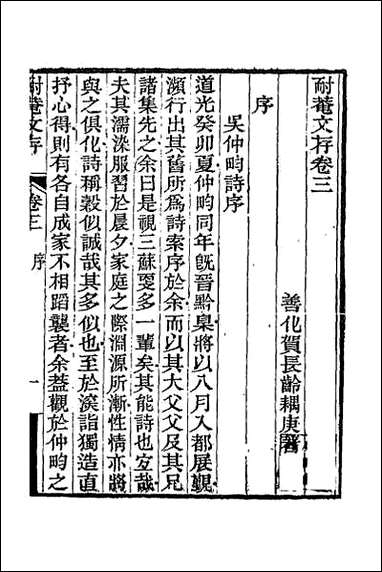 耐菴文存卷三
善化賀長齡耦庚著
序
吳仲畇詩序
道光癸卯夏仲畇同年旣晉黔臬將以八月入都展覲
瀕行出其舊所爲詩索序於余而以其大父父及其兄
諸集先之余曰是視三蘇叟多一輩矣其能詩也宜哉
夫其濡染服習於晨夕家庭之際淵源所漸性情亦將
與之俱化詩稱穀似誠哉其多似也至於溪詣獨造直
抒心得則有各自成家不相蹈襲者余蓋觀於仲畇之
耐菴文存
卷三
序
一